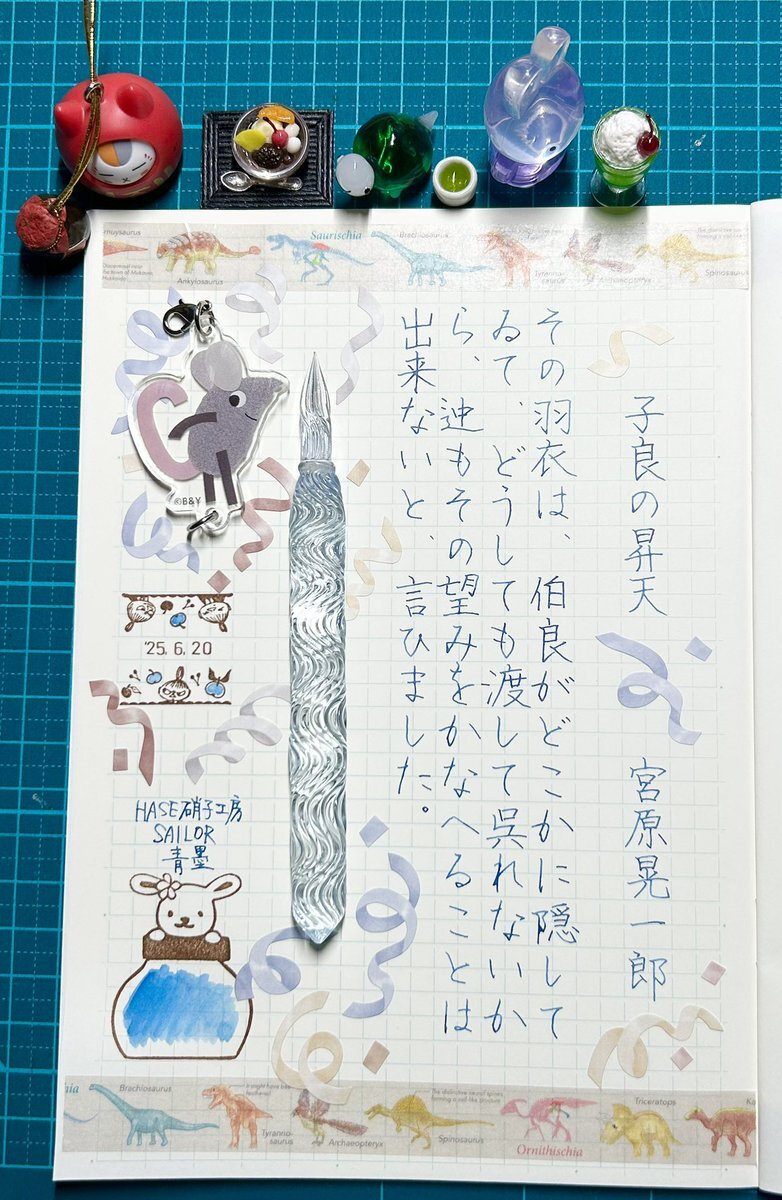 Ankylosaurus
Saurischia
Brachiosaurus
Tyranno-
saurus
Archaeopteryx
Spinosaurus
子良の昇天 宮原晃一郎
その羽衣は、伯良がどこかに隠して
ゐて、どうしても渡して呉れないか
ら、迚もその望みをかなへることは
出来ないと、言ひました。
©B&Y
'25. 6. 20
HASE硝子工房
SAILOR
青墨
Brachiosaurus
It might have been
feathered
Tyranno-
saurus
Archaeopteryx
The distinctive neural spines
forming a sail-like structure
Spinosaurus
Ornithischia
Triceratops